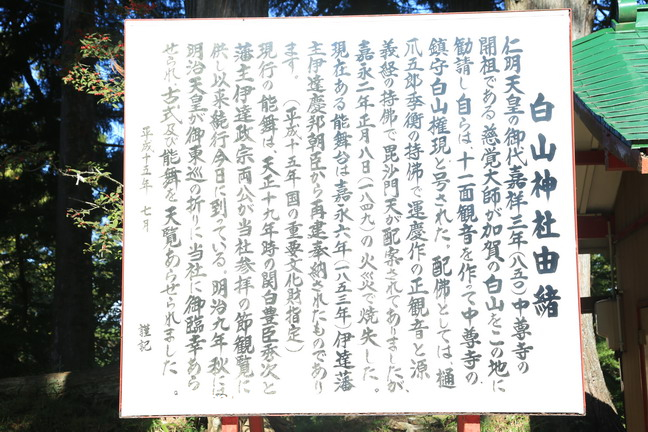 白山神社由緒
仁明天皇の御代嘉祥三年(八五〇)中尊寺の
開祖である慈覚大師が加賀の白山をこの地に
勧請し自らは十一面観音を作って中尊寺の
鎮守白山権現と号された。配佛としては、樋
爪五郎季衡の持佛で運慶作の正観音と源
義経の持佛で毘沙門天が配案されてありましたが、
嘉永二年正月八日(一八四九)の火災で焼失した。
現在ある能舞台は嘉永六年(一八五三年)伊達藩
主伊達慶邦朝臣から再建奉納されたものであり
ます。(平成十五年国の重要文化財指定)
現行の能舞は、天正十九年時の関白豊臣秀次と
藩主伊達政宗両公が当社参拝の節観覧に
供し以来続行今日に到っている。明治九年秋には
明治天皇が御東巡の折りに当社に御臨幸あら
せられ古式及び能舞を天覧あらせられました。
平成十五年 七月
謹記